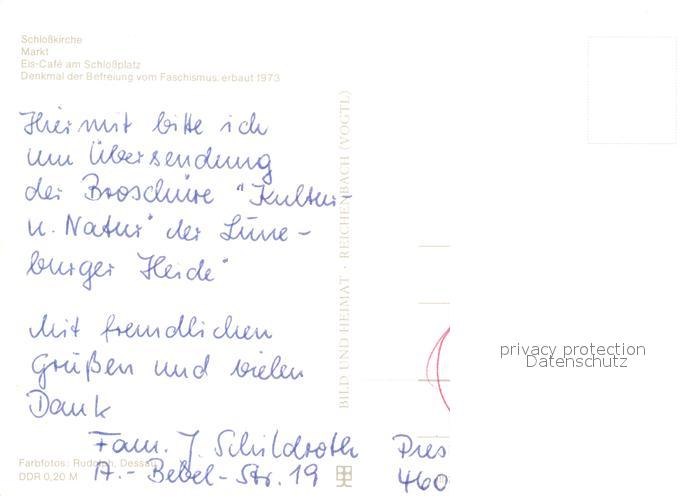 Schloßkirche
Markt
Eis-Café am Schloßplatz
Denkmal der Befreiung vom Faschismus, erbaut 1973
Hiermit bitte ich
um Übersendung
der Broschüre "Kultur-
u. Natur" der Lüne-
burger Heide"
Mit freundlichen
Grüßen und vielen
Dank
Fam. J. Schildroth
A.-Bebel-Str. 19
Farbfotos: Rudolph, Dessau
DDR 0,20 M
BILD UND HEIMAT · REICHENBACH (VOGTL)
privacy protection
Datenschutz
460